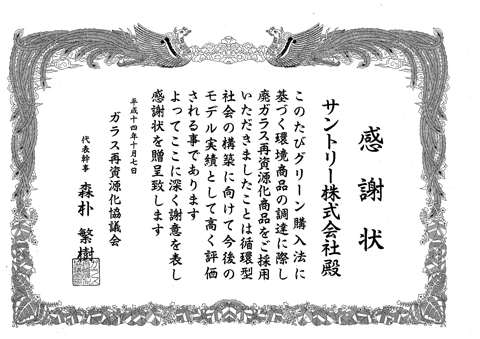 感謝状
サントリー株式会社殿
このたびグリーン購入法に
基づく環境商品の調達に際し
廃ガラス再資源化商品をご採用
いただきましたことは循環型
社会の構築に向けて今後の
モデル実績として高く評価
される事であります
よってここに深く謝意を表し
感謝状を贈呈致します
平成十四年十月七日
ガラス再資源化協議会
代表幹事 森朴 繁樹